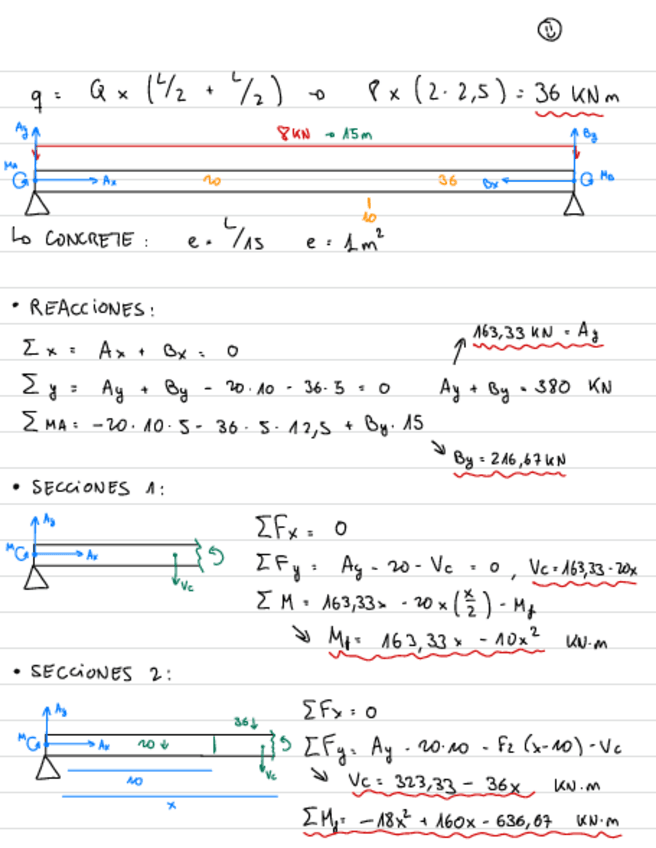 q = Q x (L/2 + L/2) → 8 x (2 · 2,5) = 36 KNm
Ay 8KN → 15m By
MA Ax 20 36 Bx MB
10
↳ CONCRETE : e = L/15 e = 1m²
• REACCIONES:
163,33 KN = Ay
Σx = Ax + Bx = 0
Σy = Ay + By - 20·10 - 36·5 = 0 Ay + By = 380 KN
ΣMA = -20·10·5 - 36·5·12,5 + By·15
By = 216,67 KN
• SECCIONES 1:
Ay
M Ax
Vc
ΣFx = 0
ΣFy = Ay - 20 - Vc = 0, Vc = 163,33 - 20x
ΣM = 163,33x - 20x (x/2) - Mf
Mf = 163,33x - 10x² KN·m
• SECCIONES 2:
Ay 36↓
M Ax 20↓
Vc
10
x
ΣFx = 0
ΣFy = Ay - 20·10 - F2 (x-10) - Vc
Vc = 323,33 - 36x KN·m
ΣMf = -18x² + 160x - 636,67 KN·m